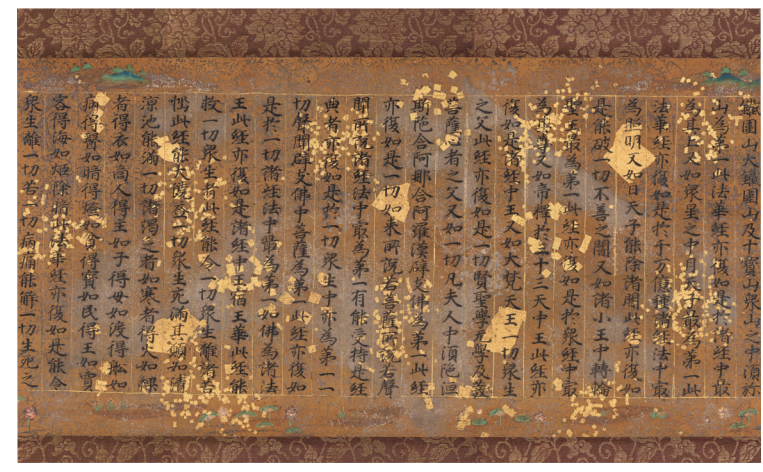 鐵圍山大鐵圍山及十寶山眾山之中須弥
山為第一此法華經亦復如是於諸經中最
為其上又如眾星之中月天子最為第一此
法華經亦復如是於千万億種諸經法中最
為照明又如日天子能除諸闇此經亦復如
是能破一切不善之闇又如諸小王中轉輪
聖王最為第一此經亦復如是於眾經中最
為其尊又如帝釋於三十三天中王此經亦
復如是諸經中王又如大梵天王一切眾生
之父此經亦復如是一切賢聖學无學及發
菩薩心者之父又如一切凡夫人中須陀洹
斯陀含阿那含阿羅漢辟支佛為第一此經
亦復如是一切如來所說若菩薩所說若聲
聞所說諸經法中最為第一有能受持是經
典者亦復如是於一切眾生中亦為第一一
切聲聞辟支佛中菩薩為第一此經亦復如
是於一切諸經法中最為第一如佛為諸法
王此經亦復如是諸經中王宿王華此經能
救一切眾生者此經能令一切眾生離諸苦
惱此經能大饒益一切眾生充滿其願如清
涼池能滿一切諸渴乏者如寒者得火如裸
者得衣如商人得主如子得母如渡得船如
病得醫如暗得燈如貧得寶如民得王如賈
客得海如炬除暗此法華經亦復如是能令
眾生離一切苦一切病痛能解一切生死之